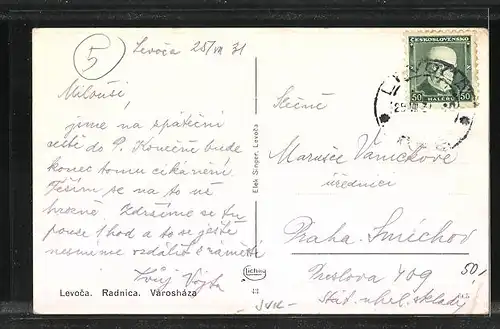 5
Levoča 25/VII 31
Milouši,
jsme na zpáteční
cestě do P. Konečně bude
konec tomu cikánění
Těším se na to už
hrozně. Zdržíme se tu
pouze 1 hod a to se ještě
nesmíme vzdálit z náměstí
Tvůj Vojta
Levoča. Radnica. Városháza
Elek Singer, Levoča
ČESKOSLOVENSKO
50 HALÉŘŮ 50
Slečně
Marušce Vaníčkové
úřednici
Praha. Smíchov
Preslova 409
Stát. uhel. sklady
50,